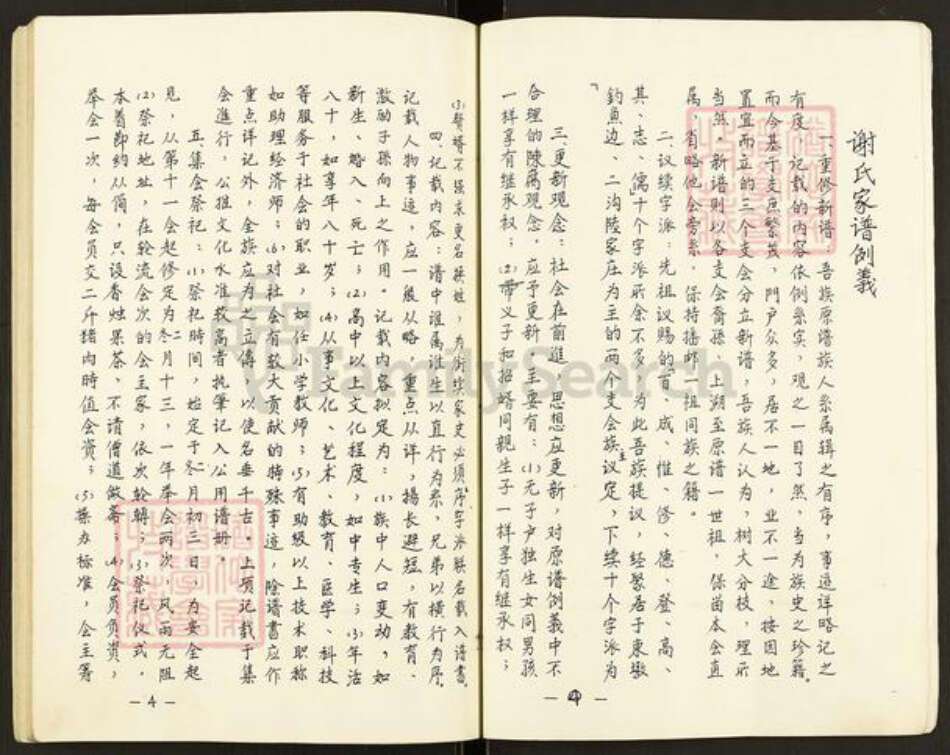 谢氏家谱例義
一、重修新谱：吾族原谱族人系属辑之有序，事迹详略记之
有度，记载的内容依例系实，观之一目了然，当为族史之珍籍。
而今基于支庶繁茂，門户众多，居不一地，业不一途，按因地
置宜而立的三个支会分立新谱，吾族人认为，树大分枝，理所
当然。新谱则以各支会裔孙，上溯至原谱一世祖，保留本会直
属，省略他会旁系，保持播部一祖同族之籍。
二、议续字派：先祖议赐的"首、成、惟、修、德、登、高、
其、志、儒"十个字派所余不多，为此吾族提议，经聚居于東墩
釣魚边、二沟陸家庄为主的两个支会族主议定，下续十个字派为
「
三、更新观念：社会在前進，思想应更新，对原谱例義中不
合理的陳腐观念，应予更新，主要有：(1)无子户独生女同男孩
一样享有继承权；(2)带义子和招婿同親生子一样享有继承权；
— 3 —
(3)贅婿不强求更名换姓，为衔接家史必须序字派联名载入谱書。
四、记载内容：谱中谁属谁生以直行为系，兄弟以横行为序。
记载人物事迹，应一般从略，重点从详，揚长避短，有教育、
激励子孫向上之作用。记载内容拟定为：(1)族中人口变动，如
新生、婚入、死亡；(2)高中以上文化程度，如中专生；(3)年活
八十，如享年八十岁；(4)从事文化、艺术、教育、医学、科技
等服务于社会的职业，如任小学教师；(5)有助级以上技术职称
如助理经济师；(6)对社会有较大贡献的特殊事迹，除谱書应作
重点详记外，全族应为之立傳，以使名垂千古。上项记载于集
会進行，公推文化水准较高者执筆记入公用谱册。
五、集会祭祀：(1)祭祀時间，始定于冬月初三日，为安全起
見，从第十一会起修定为冬二月十三，一年举会两次，风雨无阻
(2)祭祀地址，在轮流会次的会主家，依次轮轉；(3)祭祀仪式，
本着節约从簡，只设香烛果茶，不请僧道做斋；(4)会员负資，
举会一次，每会员交二斤猪肉時值会資；(5)操办标准，会主筹
— 4 —